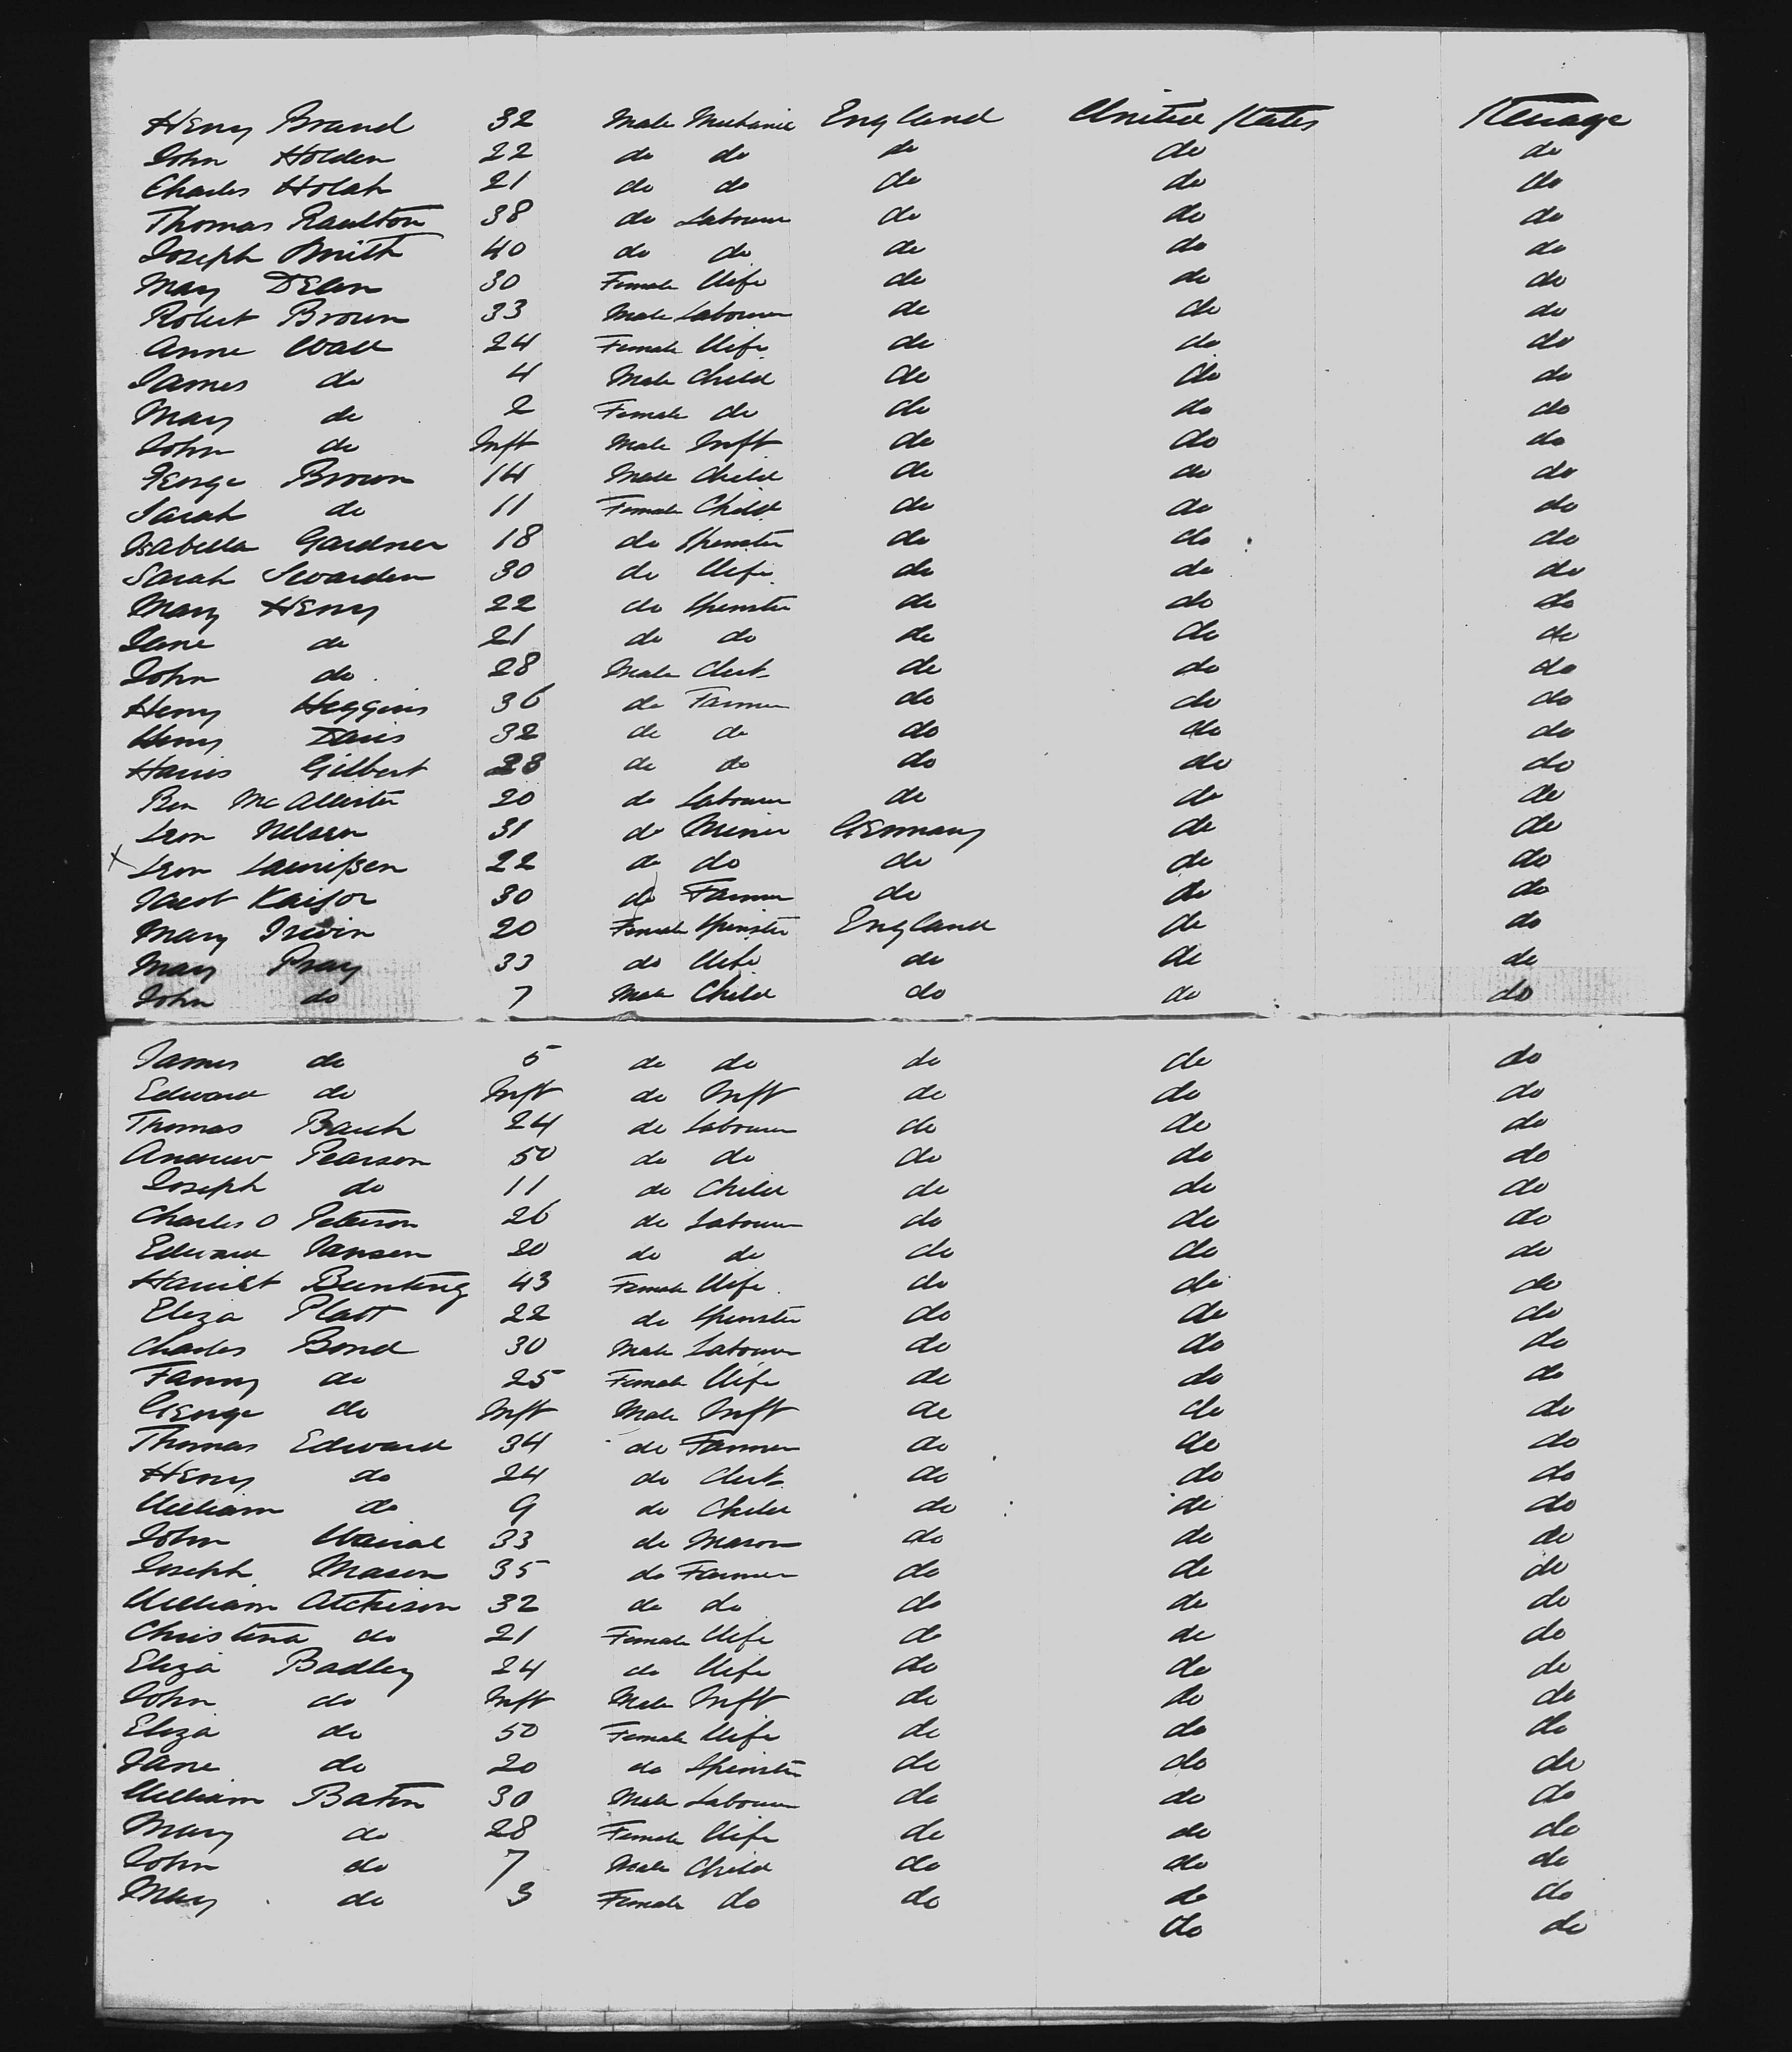 Henry Brand 32 Male Mechanic England United States Steerage
John Holden 22 do do do do do
Charles Holah 21 do do do do do
Thomas Raulton 38 do Labourer do do do
Joseph Smith 40 do do do do do
Mary 30 Female Wife do do do
Robert Brown 33 Male Labourer do do do
Anne Wall 24 Female Wife do do do
James do 4 Male Child do do do
Mary do 2 Female do do do do
John do Inft Male Inft do do do
George Brown 14 Male Child do do do
Sarah do 11 Female Child do do do
Isabella Gardner 18 do Spinster do do do
Sarah 30 do Wife do do do
Mary Henry 22 do Spinster do do do
Jane do 21 do do do do do
John do 28 Male Clerk do do do
Henry Heggins 36 do Farmer do do do
Henry Davis 32 do do do do do
Harris Gilbert 28 do do do do do
Ben McAllister 20 do Labourer do do do
Nelson 31 do Miner Germany do do
x 22 do do do do do
Jacob Kaifor 30 do Farmer do do do
Mary Irwin 20 Female Spinster England do do
Mary Pray 33 do Wife do do do
John do 7 Male Child do do do
James do 5 do do do do do
Edward do Inft do Inft do do do
Thomas 24 do Labourer do do do
Andrew Pearson 50 do do do do do
Joseph do 11 do Child do do do
Charles O Peterson 26 do Labourer do do do
Edward Jansen 20 do do do do do
Harriet Bunting 43 Female Wife do do do
Eliza Platt 22 do Spinster do do do
Charles Bond 30 Male Labourer do do do
Fanny do 25 Female Wife do do do
George do Inft Male Inft do do do
Thomas Edward 34 do Farmer do do do
Henry do 24 do Clerk do do do
William do 9 do Child do do do
John 33 do Mason do do do
Joseph Mason 35 do Farmer do do do
William Atchison 32 do do do do do
Christina do 21 Female Wife do do do
Eliza Badley 24 do Wife do do do
John do Inft Male Inft do do do
Eliza do 50 Female Wife do do do
Jane do 20 do Spinster do do do
William Baton 30 Male Labourer do do do
Mary do 28 Female Wife do do do
John do 7 Male Child do do do
Mary do 3 Female do do do do
do do